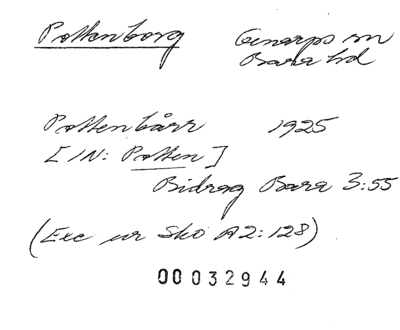 Pottenborg Genarps sn
Bara hd
Pottenbårr 1925
[IN: Potten]
Bidrag Bara 3:55
(Exc ur Sko A2:128)
00032944